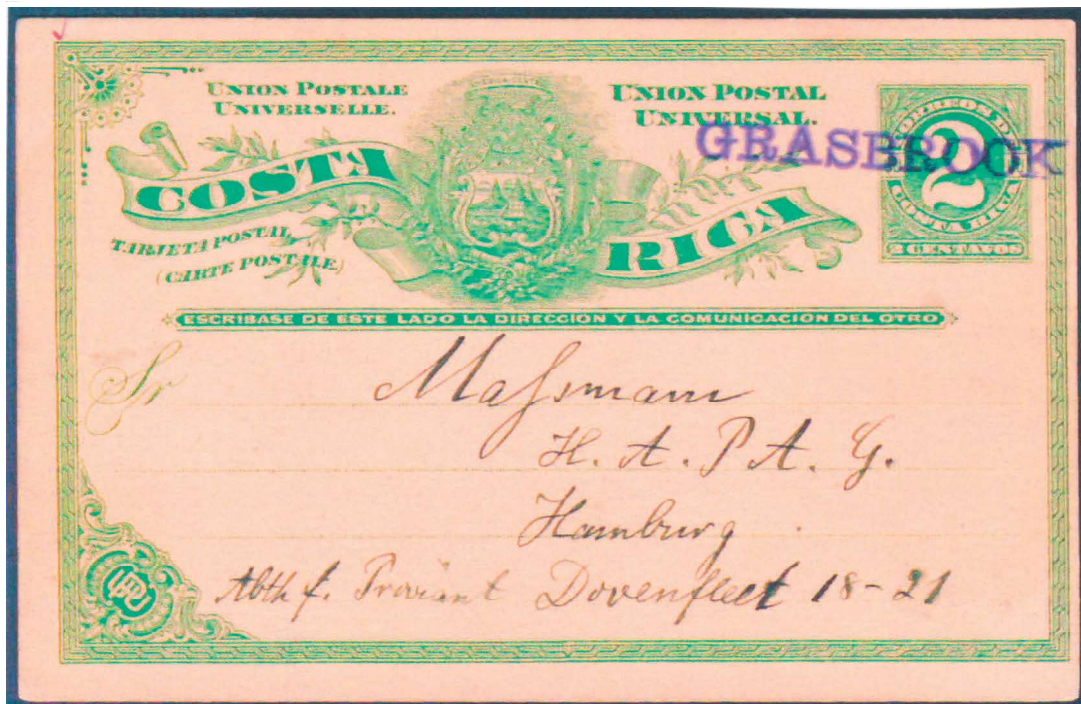 UNION POSTALE
UNIVERSELLE.
UNION POSTAL
UNIVERSAL.
GRASBROOK
CORREOS DE
2
COSTA RICA
2 CENTAVOS
COSTA
RICA
TARJETA POSTAL
(CARTE POSTALE)
ESCRIBASE DE ESTE LADO LA DIRECCION Y LA COMUNICACION DEL OTRO
Sr
Maſsmann
H. A. P. A. G.
Hamburg
Abth f. Proviant Dovenfleet 18-21
UPU